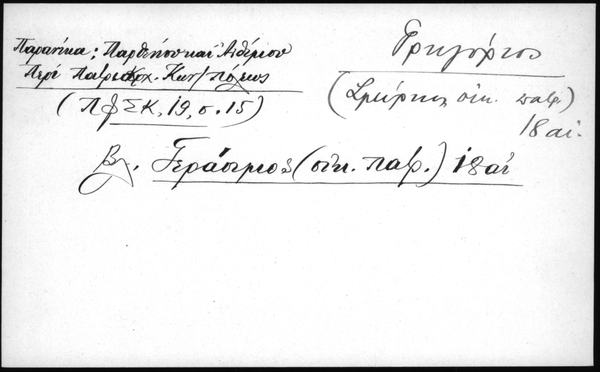 Παρανίκα: Παρθενίου καὶ Ἀνθίμου
Περὶ Πατριαρχ. Κων/πόλεως
(ΠΦΣΚ, 19, σ. 15)
Γρηγόριος
(Σμύρνης οἰκ. πατρ.)
18 αἰ.
Βλ. Γεράσιμος (οἰκ. πατρ.) 18 αἰ